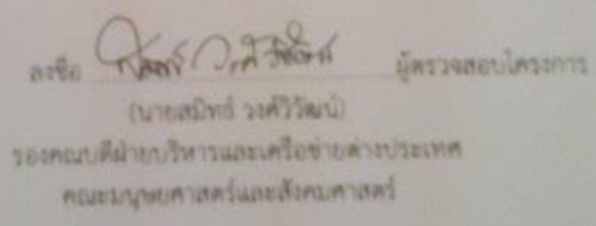 ลงชื่อ ผู้ตรวจสอบโครงการ
(นายสมิทธ์ วงศ์วิวัฒน์)
รองคณบดีฝ่ายบริหารและเครือข่ายต่างประเทศ
คณะมนุษยศาสตร์และสังคมศาสตร์